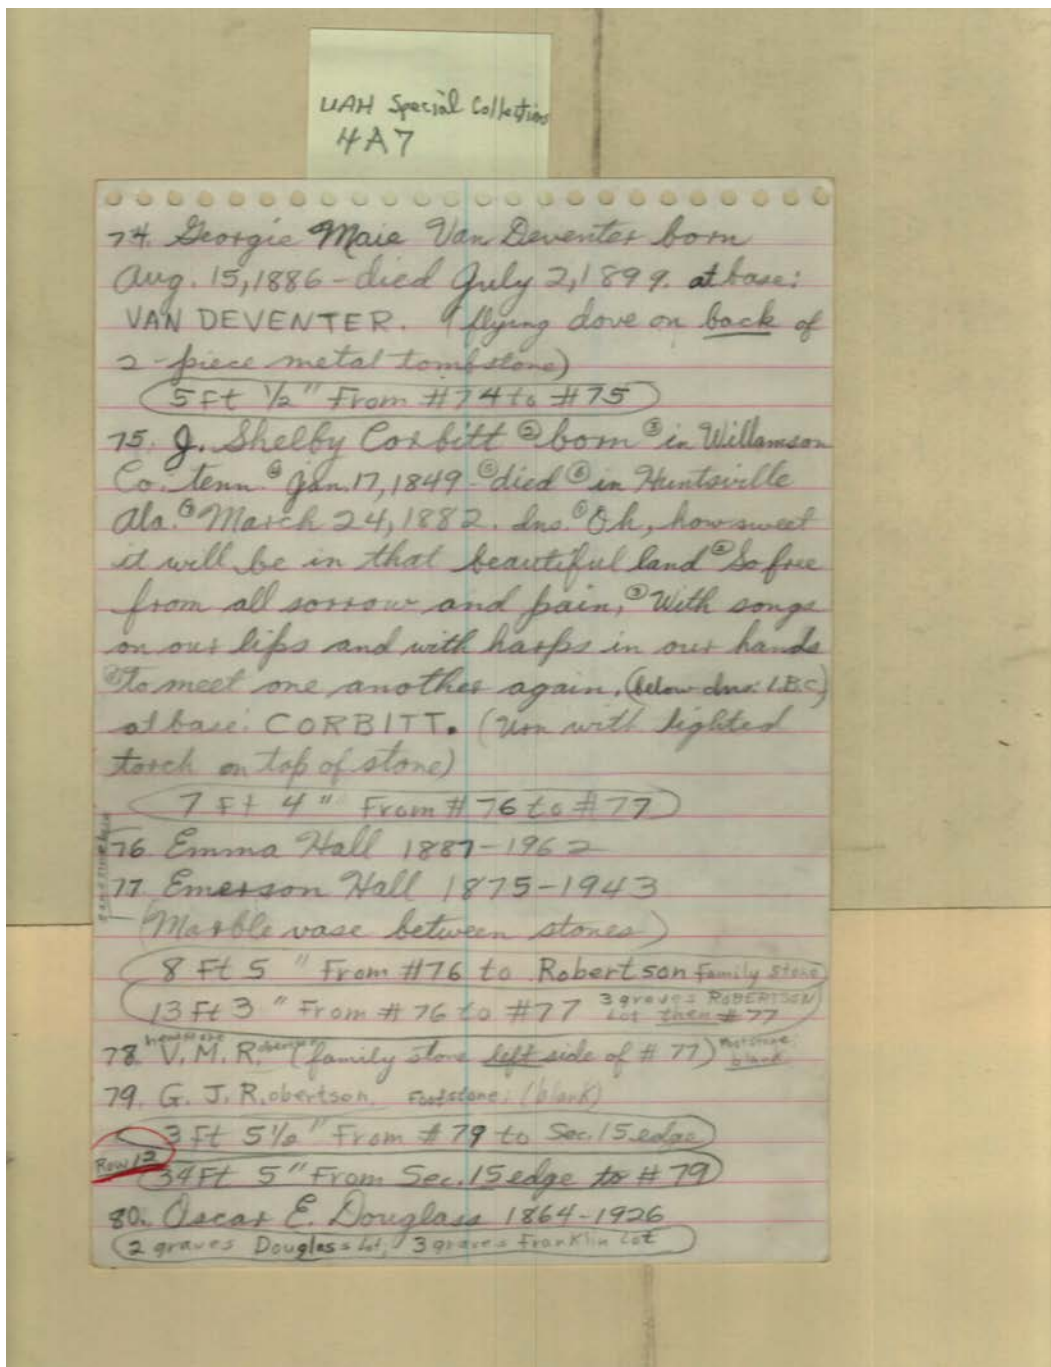 UAH Special Collections
4A7
74. Georgie Maie Van Deventer born
Aug. 15, 1886 - died July 2, 1899. at base:
VAN DEVENTER. (flying dove on back of
2-piece metal tombstone)
5 Ft ½" From #74 to #75
75. J. Shelby Corbitt ② born ③ in Willamson
Co. tenn. ④ Jan. 17, 1849 - ⑤ died ⑥ in Huntsville
Ala. ⑦ March 24, 1882. Ins. ① Oh, how sweet
it will be in that beautiful land ② So free
from all sorrow and pain, ③ With songs
on our lips and with harps in our hands
④ To meet one another again, (below Ins: I.B.C)
at base: CORBITT. (Urn with lighted
torch on top of stone)
7 Ft 4" From #76 to #77
76. Emma Hall 1887-1962
77. Emerson Hall 1875-1943
(Marble vase between stones)
8 Ft 5" From #76 to Robertson family stone
13 Ft 3" From #76 to #77 3 graves ROBERTSON
Lot then #77
78. V. M. Robertson (family stone left side of #77) footstone: blank
79. G. J. Robertson. Footstone: (blank)
3 Ft 5½" From #79 to Sec. 15 edge
Row 12
34 Ft 5" From Sec. 15 edge to #79
80. Oscar E. Douglass 1864-1926
2 graves Douglass Lot, 3 graves Franklin Lot